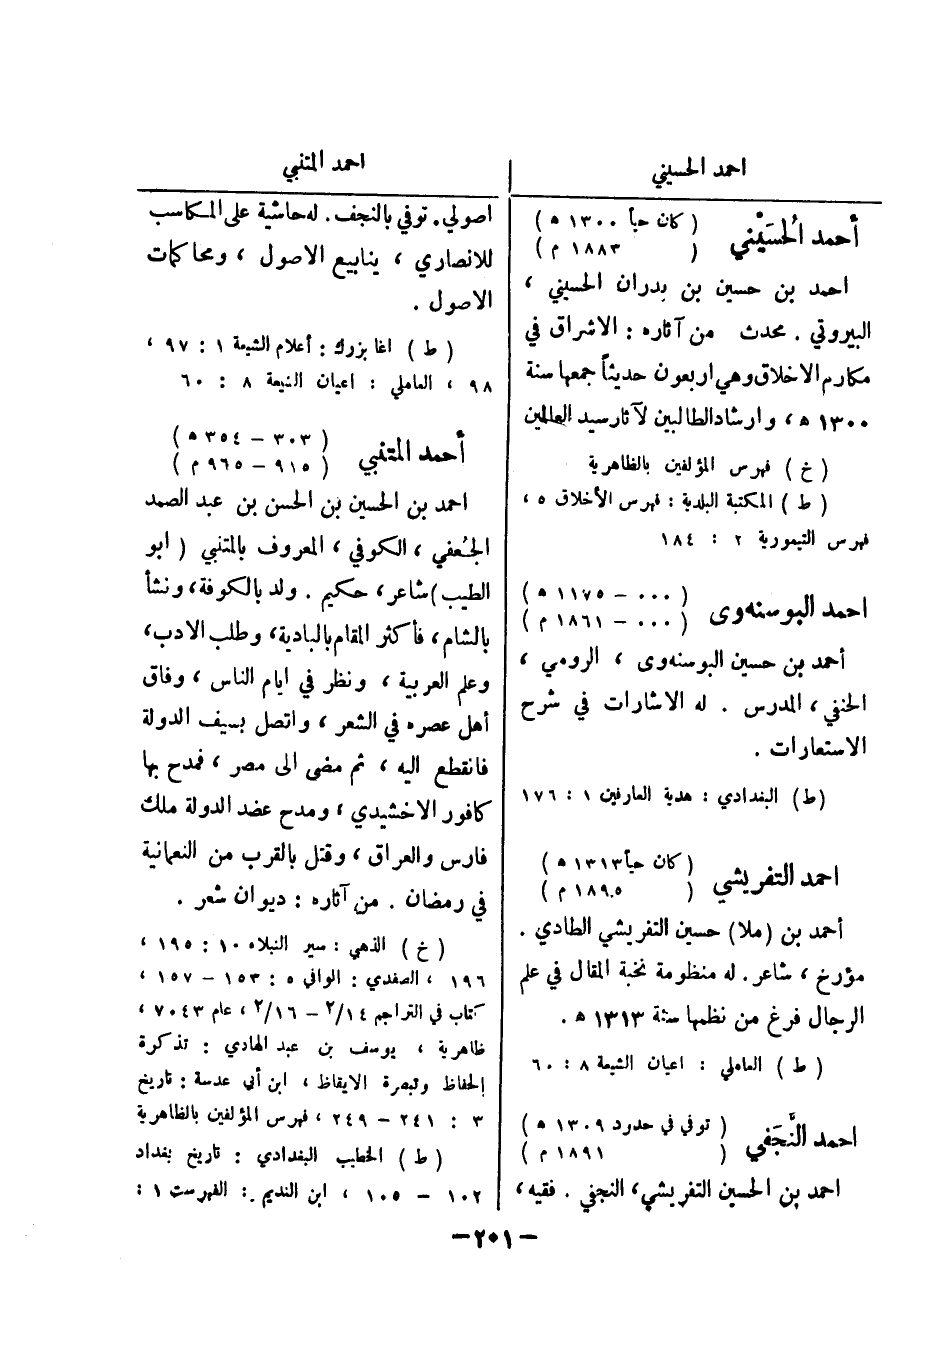 احمد الحسيني
أحمد الحُسَيْني
( كان حياً ١٣٠٠ ه )
( ١٨٨٣ م )
احمد بن حسين بن بدران الحسيني ،
البيروتي . محدث من آثاره : الاشراق في
مكارم الاخلاق وهي اربعون حديثاً جمعها سنة
١٣٠٠ ه ، وارشاد الطالبين لآثار سيد العالمين
( خ ) فهرس المؤلفين بالظاهرية
( ط ) المكتبة البلدية : فهرس الأخلاق ٥ ،
فهرس التيمورية ٢ : ١٨٤
احمد البوسنه‌وى
( ٠٠٠ – ١١٧٥ ه )
( ٠٠٠ – ١٨٦١ م )
أحمد بن حسين البوسنه‌وى ، الرومي ،
الحنفي ، المدرس . له الاشارات في شرح
الاستعارات .
(ط) البغدادي : هدية العارفين ١ : ١٧٦
احمد التفريشي
( كان حياً ١٣١٣ ه )
( ١٨٩٥ م )
أحمد بن (ملا) حسين التفريشي الطادي .
مؤرخ ، شاعر . له منظومة نخبة المقال في علم
الرجال فرغ من نظمها سنة ١٣١٣ ه .
( ط ) العاملي : اعيان الشيعة ٨ : ٦٠
احمد النَّجَفي
( توفي في حدود ١٣٠٩ ه )
( ١٨٩١ م )
احمد بن الحسين التفريشي، النجفي . فقيه،
احمد المتنبي
اصولي. توفي بالنجف. له حاشية على المكاسب
للانصاري ، ينابيع الاصول ، ومحاكمات
الاصول .
( ط ) اغا بزرك : أعلام الشيعة ١ : ٩٧ ،
٩٨ ، العاملي : اعيان الشيعة ٨ : ٦٠
أحمد المتنبي
( ٣٠٣ – ٣٥٤ ه )
( ٩١٥ – ٩٦٥ م )
احمد بن الحسين بن الحسن بن عبد الصمد
الجُعفي ، الكوفي ، المعروف بالمتنبي ( ابو
الطيب ) شاعر ، حكيم . ولد بالكوفة، ونشأ
بالشام، فأكثر المقام بالبادية، وطلب الادب،
وعلم العربية ، ونظر في ايام الناس ، وفاق
أهل عصره في الشعر ، واتصل بسيف الدولة
فانقطع اليه ، ثم مضى الى مصر ، فمدح بها
كافور الاخشيدي ، ومدح عضد الدولة ملك
فارس والعراق ، وقتل بالقرب من النعمانية
في رمضان . من آثاره : ديوان شعر .
( خ ) الذهبي : سير النبلاء ١٠ : ١٩٥ ،
١٩٦ ، الصفدي : الوافي ٥ : ١٥٣ – ١٥٧ ،
كتاب في التراجم ٢/١٤ – ٢/١٦ ، عام ٧٠٤٣ ،
ظاهرية ، يوسف بن عبد الهادي : تذكرة
الحفاظ وتبصرة الايقاظ ، ابن أبي عدسة : تاريخ
٣ : ٢٤١ – ٢٤٩ ، فهرس المؤلفين بالظاهرية
( ط ) الخطيب البغدادي : تاريخ بغداد
١٠٢ – ١٠٥ ، ابن النديم : الفهرست ١ :
– ٢٠١ –